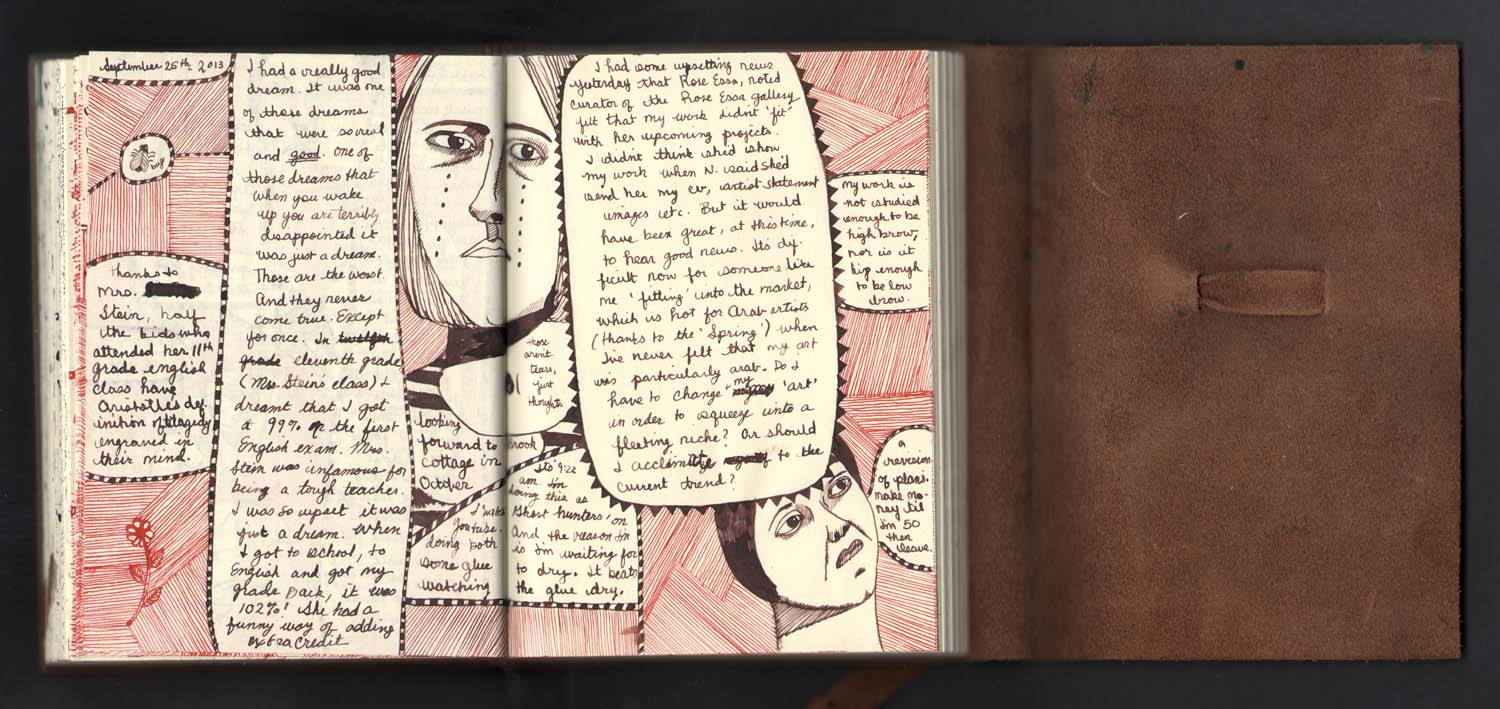 September 25th, 2013
bug
thanks to
Mrs.
Stein, half
the kids who
attended her 11th
grade english
class have
Aristotle's def-
inition of tragedy
engraved in
their mind.
I had a really good
dream. It was one
of those dreams
that were so real
and good. One of
those dreams that
when you wake
up you are terribly
disappointed it
was just a dream.
Those are the worst.
And they never
come true. Except
for once. In twelfth
grade eleventh grade
(Mrs. Stein's class) I
dreamt that I got
a 99% on the first
English exam. Mrs.
Stein was infamous for
being a tough teacher.
I was so upset it was
just a dream. When
I got to school, to
English and got my
grade back, it was
102%! She had a
funny way of adding
extra credit
those
aren't
tears,
just
thoughts
looking
forward to
cottage in
October
It's 9:22
am. I'm
doing this as
'Ghost hunters' on
And the reason I'm
is I'm waiting for
to dry. It beats
the glue dry.
I watch
Youtube.
doing both
some glue
watching
I had some upsetting news
yesterday that Rose Essa, noted
curator of the Rose Essa gallery
felt that my work didn't 'fit'
with her upcoming projects.
I didn't think she'd show
my work when N. said she'd
send her my cv, artist statement
images etc. But it would
have been great, at this time,
to hear good news. It's dif-
ficult now for someone like
me 'fitting' into the market,
which is hot for Arab artists
(thanks to the 'Spring') when
I've never felt that my art
was particularly arab. Do I
have to change my 'art'
in order to squeeze into a
fleeting niche? Or should
I acclimate to the
current trend?
my work is
not studied
enough to be
high brow,
nor is it
hip enough
to be low
brow.
a
revision
of plans.
make mo-
ney til
I'm 50
then
leave.